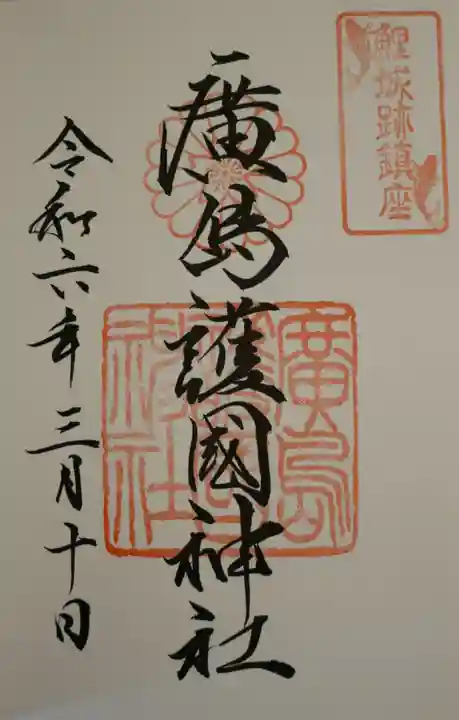 鯉城跡鎮座
廣島護國神社
廣島護國神社
令和六年三月十日